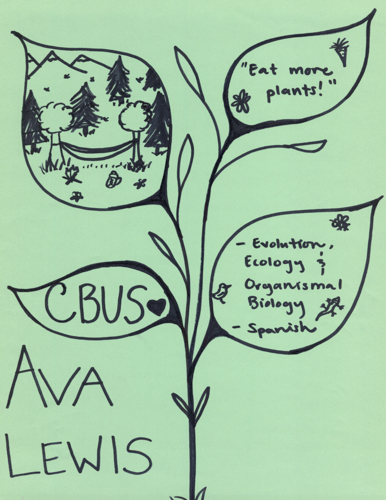 "Eat more
plants!"
- Evolution,
Ecology &
Organismal
Biology
- Spanish
CBUS
AVA
LEWIS